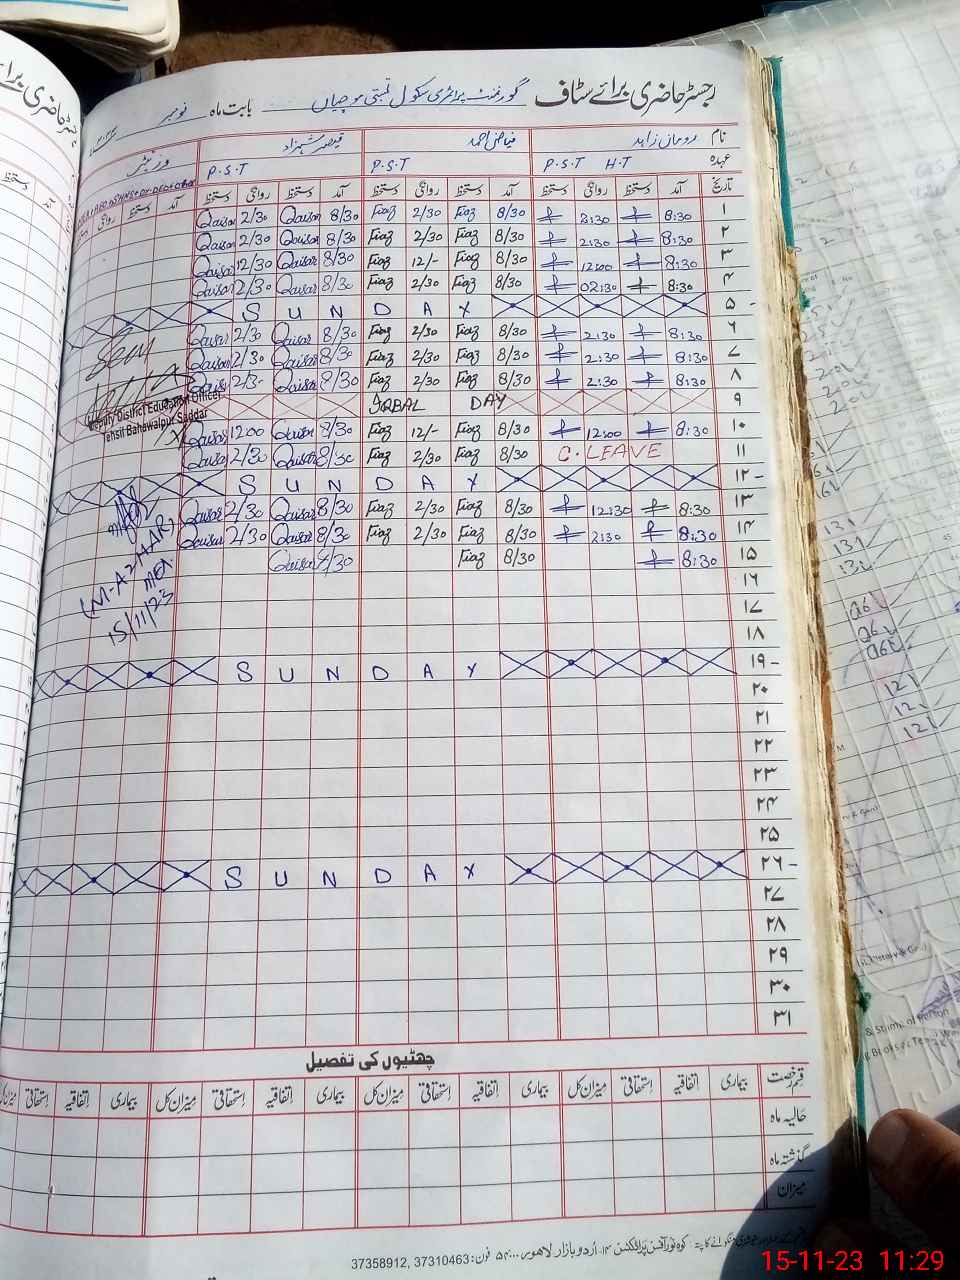 رجسٹر حاضری برائے سٹاف گورنمنٹ پرائمری سکول بستی موچیاں بابت ماہ نومبر
نام رومان زاہد فیاض احمد قیصر شہزاد وزیٹر
عہدہ P.S.T H.T P.S.T P.S.T
تاریخ آمد دستخط روانگی دستخط آمد دستخط روانگی دستخط آمد دستخط روانگی دستخط آمد دستخط روانگی
۱ 8:30 2:30 8/30 Fiaz 2/30 Fiaz 8/30 Qaisar 2/30 Qaisar
۲ 8:30 2:30 8/30 Fiaz 2/30 Fiaz 8/30 Qaisar 2/30 Qaisar
۳ 8:30 12:00 8/30 Fiaz 12/- Fiaz 8/30 Qaisar 12/30 Qaisar
۴ 8:30 02:30 8/30 Fiaz 2/30 Fiaz 8/30 Qaisar 2/30 Qaisar
۵ - SUNDAY
۶ 8:30 2:30 8/30 Fiaz 2/30 Fiaz 8/30 Qaisar 2/30 Qaisar
۷ 8:30 2:30 8/30 Fiaz 2/30 Fiaz 8/30 Qaisar 2/30 Qaisar
۸ 8:30 2:30 8/30 Fiaz 2/30 Fiaz 8/30 Qaisar 2/3- Qaisar
۹ IQBAL DAY
Deputy District Education Officer
Tehsil Bahawalpur Saddar
۱۰ 8:30 12:00 8/30 Fiaz 12/- Fiaz 8/30 Qaisar 1200 Qaisar
۱۱ C. LEAVE 8/30 Fiaz 2/30 Fiaz 8/30 Qaisar 2/30 Qaisar
۱۲ - SUNDAY
۱۳ 8:30 12:30 8/30 Fiaz 2/30 Fiaz 8/30 Qaisar 2/30 Qaisar
۱۴ 8:30 2:30 8/30 Fiaz 2/30 Fiaz 8/30 Qaisar 2/30 Qaisar
۱۵ 8:30 8/30 Fiaz 8/30 Qaisar
(M-AZHAR)
MEA
15/11/23
۱۶
۱۷
۱۸
۱۹ - SUNDAY
۲۰
۲۱
۲۲
۲۳
۲۴
۲۵
۲۶ - SUNDAY
۲۷
۲۸
۲۹
۳۰
۳۱
چھٹیوں کی تفصیل
قسم رخصت بیماری اتفاقیہ استحقاقی میزان کل بیماری اتفاقیہ استحقاقی میزان کل بیماری اتفاقیہ استحقاقی میزان کل بیماری اتفاقیہ استحقاقی میزان کل
حالیہ ماہ
گذشتہ ماہ
میزان
اُردو بازار لاہور فون: 37310463, 37358912
15-11-23 11:29